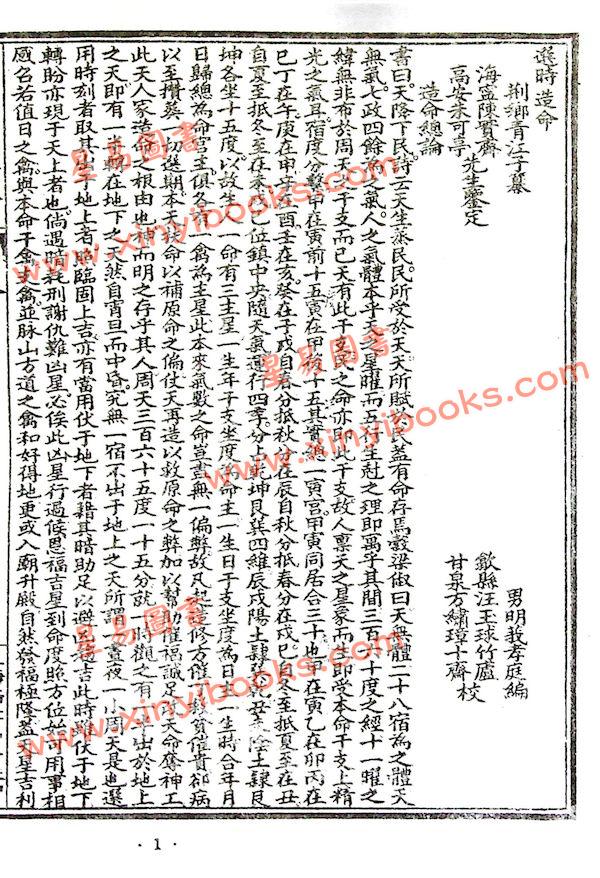 選時造命
荆鄉青江子纂
男明𢽾孝庭編
海寧陳實齋
高安朱可亭
先生鑒定
歙縣汪玉球竹廬
甘泉方繡璋十齋 校
造命總論
書曰天降下民詩云天生蒸民民所受於天天所賦於民蓋有命存焉穀梁俶曰天無體二十八宿為之體天
無氣七政四餘為之氣人之氣體本乎天之星曜而五行生尅之理即寓乎其間三百六十度之經十一曜之
緯無非布於周天之干支而已天有此干支民之命亦即此干支故人稟天之星象而生即受本命干支上精
光之氣耳宿度分數甲在寅前十五寅在甲後十五其實總一寅宮甲寅同居合三十也丙在寅乙在卯丙在
巳丁在午庚在申辛在酉壬在亥癸在子戌自春分抵秋分在辰自秋分抵春分在戌巳自冬至抵夏至在丑
自夏至抵冬至在未戊己位鎮中央隨天氣運行四季分上乾坤艮巽四維辰戌陽土隸乾巽丑未陰土隸艮
坤各坐十五度以故生人一命有三主星一生年干支坐度為命主一生日干支坐度為日主一生時合年月
日歸總為命宮主俱各宿一禽為主星此本來氣數之命豈盡無一偏弊故凡起造修方催丁救貧催貴卻病
以至攢葬一切選期本天扶命以補原命之偏仗天再造以救原命之弊加以幫助催福誠足奪天命奪神工
此天人家造命之根由也神而明之存乎其人周天三百六十五度一十五分就一時觀之有一半出於地上
之天即有一半轉在地下之天然自宵旦而中昏究無一宿不出于地上之天所謂一晝夜一小周天是也選
用時刻者取其出于地上者照臨固上吉亦有當用伏于地下者藉其暗助足以避兇趨吉此時雖伏于地下
轉盼亦現于天上者也倘遇暗耗刑謝仇難凶星必俟此凶星行過候恩福吉星到命度照方位始可用事相
感名若值日之禽與本命子禽支禽並脉山方道之禽和好得地更或入廟升殿自然發福極隆蓋天星吉利
星易圖書
www.xinyibooks.com
星易圖書
www.xinyibooks.com
星易圖書
www.xinyibooks.com
· 1 ·